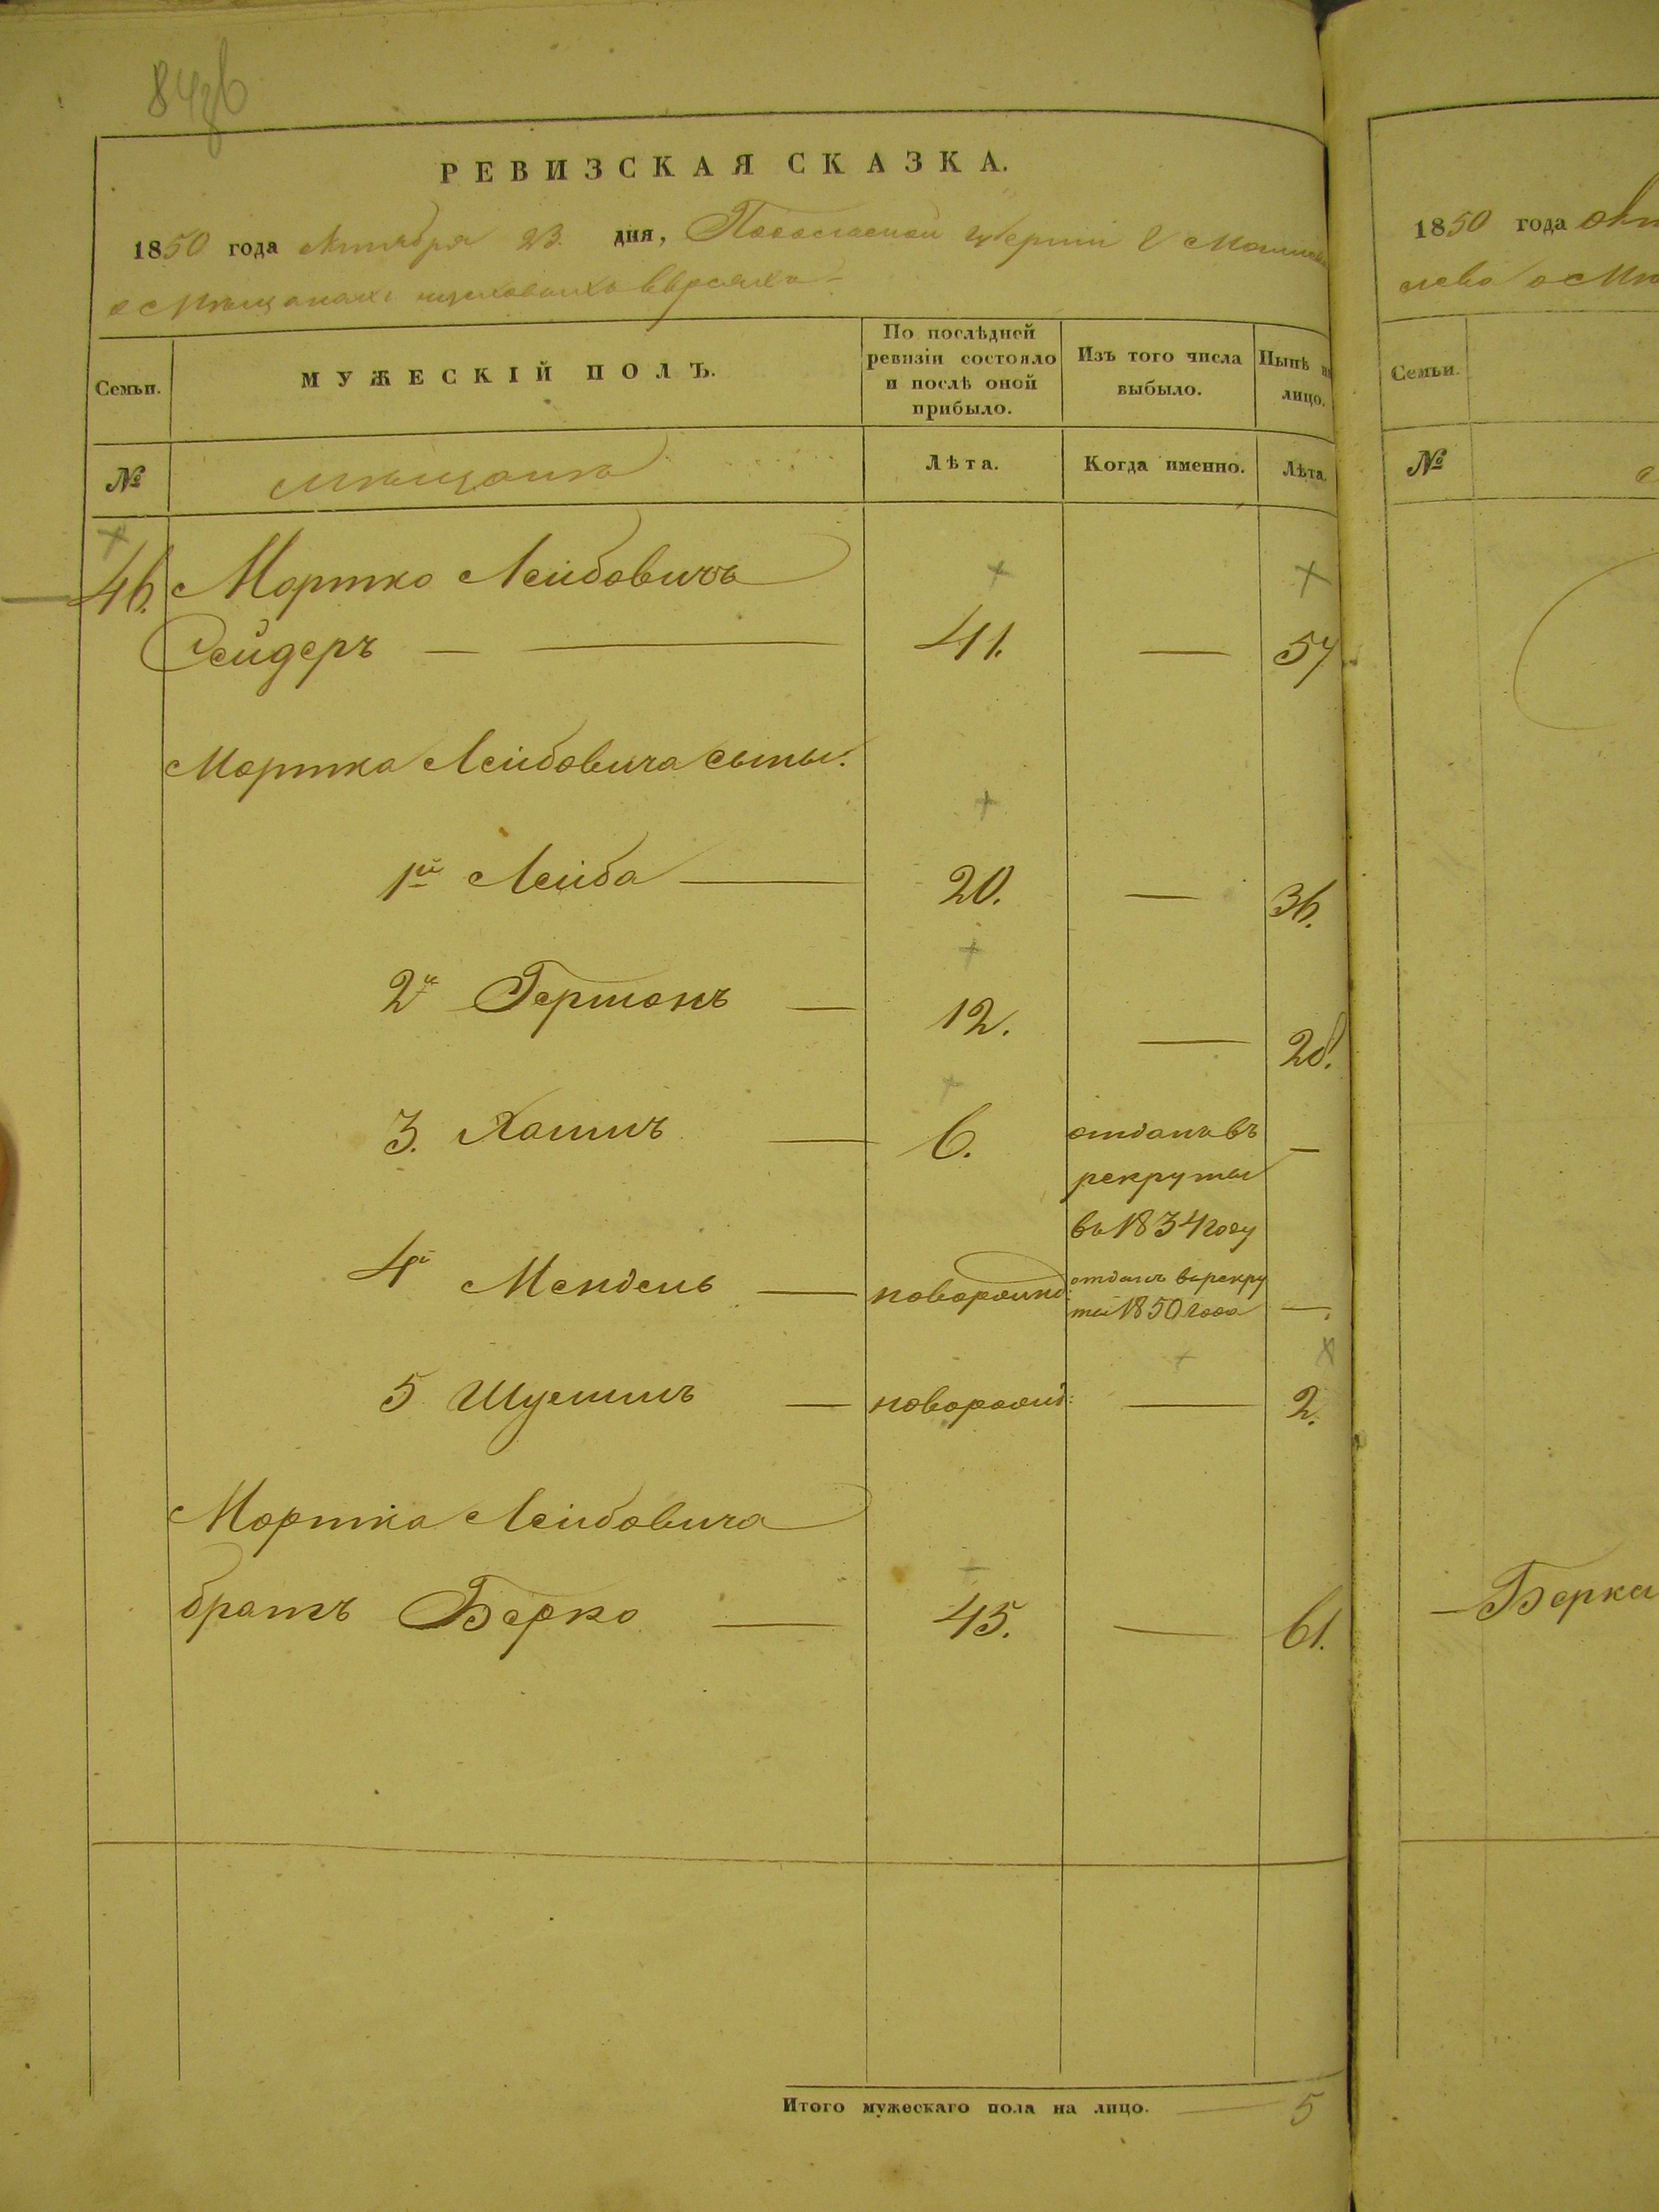 РЕВИЗСКАЯ СКАЗКА.
1850 года Октября 23 дня, Подольской губернии г Могилева
о Мѣщанахъ Евреяхъ
Семьи.
МУЖЕСКІЙ ПОЛЪ.
По послѣдней ревизіи состояло и послѣ оной прибыло.
Изъ того числа выбыло.
Нынѣ на лицо.
№
мѣщанъ
Лѣта.
Когда именно.
Лѣта.
46. Мортко Лейбовичъ
Сейдеръ — 41. — 57
Мортка Лейбовича сыны.
1й Лейба — 20. — 36.
2й Гершонъ — 12. — 28.
3. Хаимъ — 6. отданъ въ —
рекруты
въ 1834 году
4й Мендель — новорожд: отданъ в рекру
ты 1850 года —
5 Шулимъ — новорожд: — 2.
Мортка Лейбовича
братъ Берко — 45. — 61.
Итого мужескаго пола на лицо. — 5
1850 года Окт
лева о Мѣ
Семьи.
№
— Берка